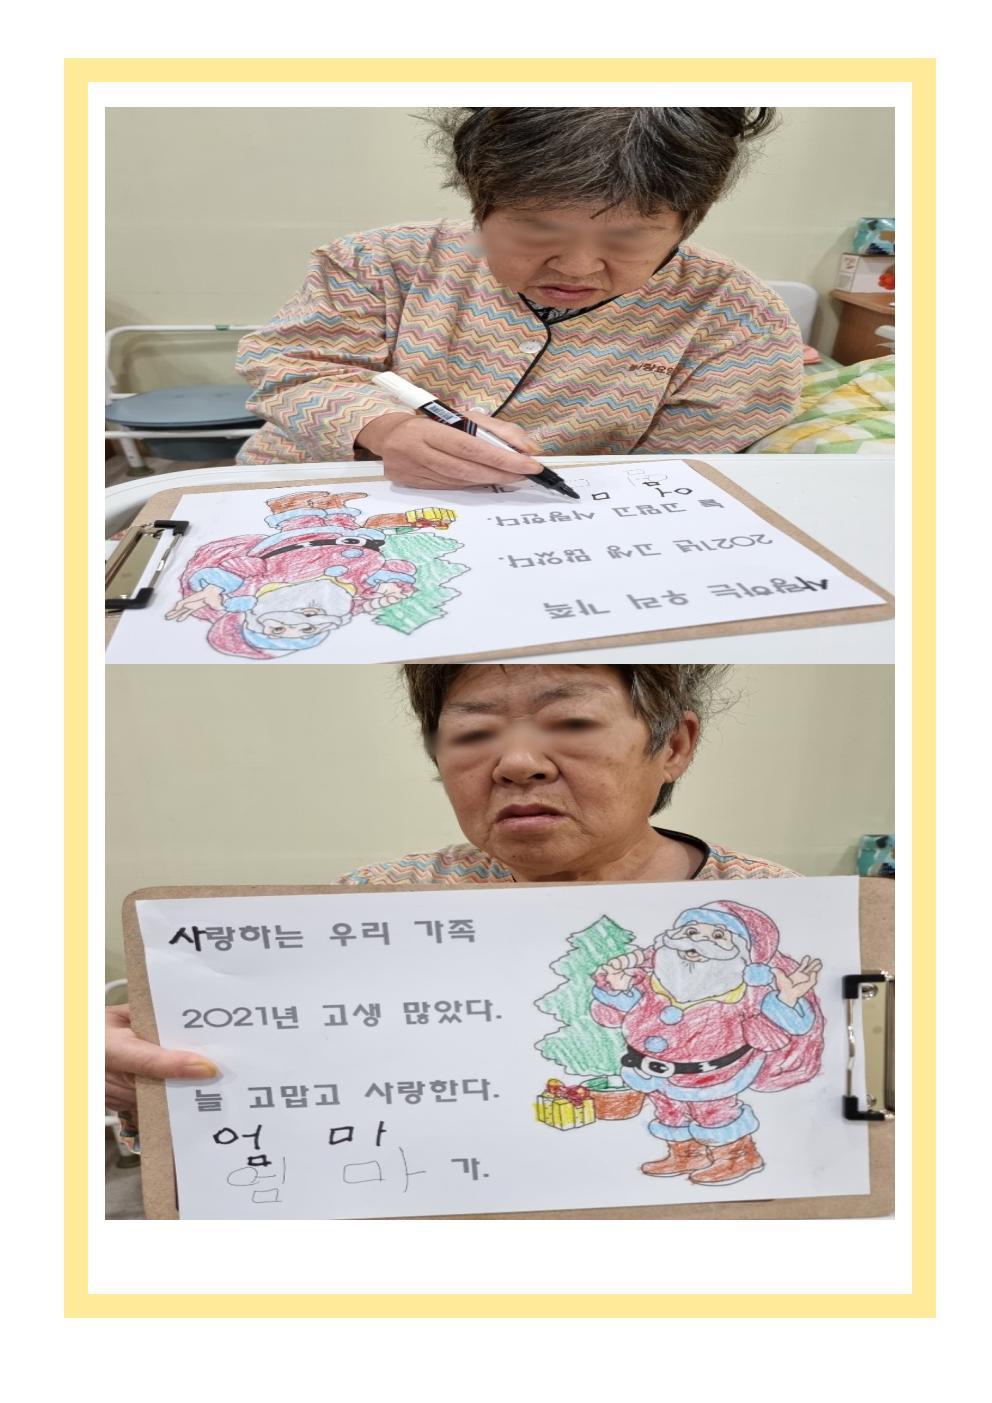 늘 고맙고 사랑한다.
2021년 고생 많았다.
사랑하는 우리 가족
사랑하는 우리 가족
2021년 고생 많았다.
늘 고맙고 사랑한다.
엄 마
엄 마 가.